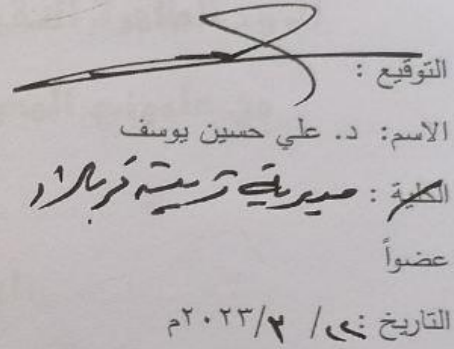 التوقيع :
الاسم: د. علي حسين يوسف
الكلية : مديرية تربية كربلاء
عضواً
التاريخ : / ٣ / ٢٠٢٣م